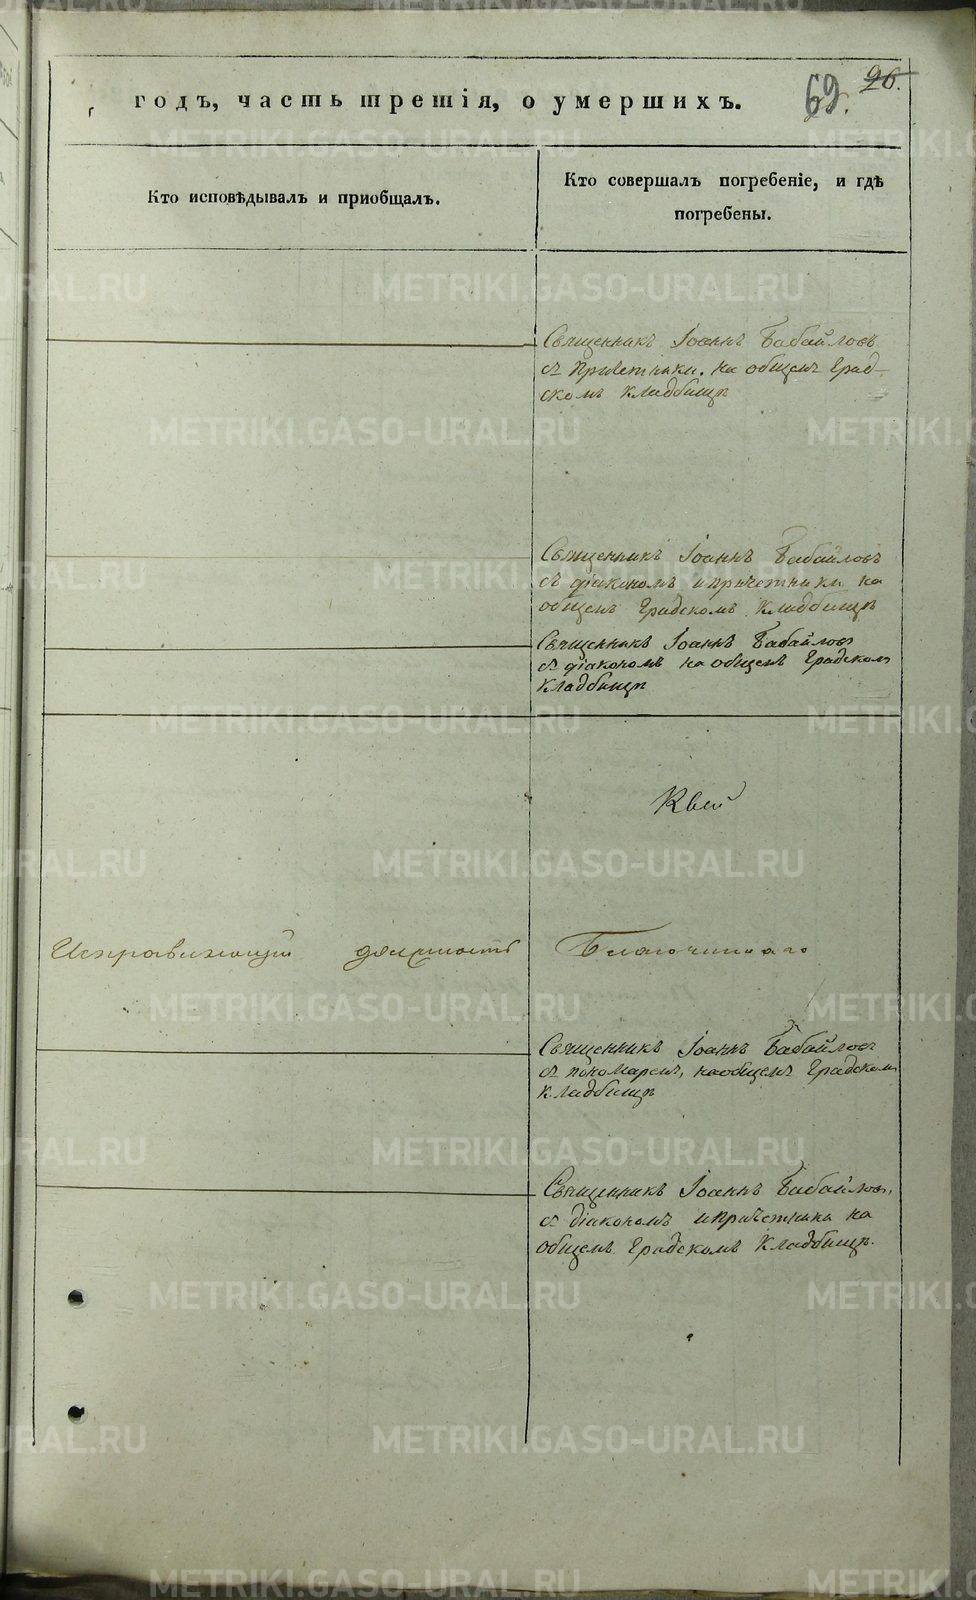 годъ, часть третія, о умершихъ.
69.
26.
Кто исповѣдывалъ и приобщалъ.
Кто совершалъ погребеніе, и гдѣ
погребены.
Священникъ Іоаннъ Бабайловъ
съ причетники. на общемъ Град-
скомъ кладбищѣ
Священникъ Іоаннъ Бабайловъ
съ діакономъ и причетники на
общемъ Градскомъ Кладбищѣ
Священникъ Іоаннъ Бабайловъ
съ діакономъ на общемъ Градском
Кладбищѣ
Исправляющій должность Благочиннаго
Священникъ Іоаннъ Бабайловъ
съ пономаремъ, на общемъ Градском
кладбищѣ
Священникъ Іоаннъ Бабайловъ,
съ діакономъ и причетники на
общемъ Градскомъ Кладбищѣ.
METRIKI.GASO-URAL.RU